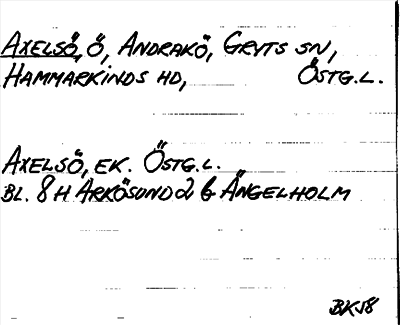 AXELSÖ, Ö, ANDRAKÖ, GRYTS SN,
HAMMARKINDS HD, ÖSTG.L.
AXELSÖ, EK. ÖSTG.L.
BL. 8H ARKÖSUND 2 G ÄNGELHOLM
BK58